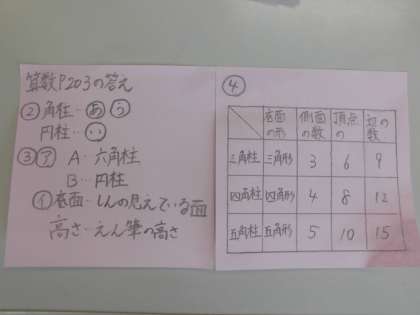 算数P203の答え
② 角柱‥ⓐ ⓤ
円柱‥ⓘ
③ ㋐ A‥六角柱
B‥円柱
㋑ 底面‥しんの見えている面
高さ‥えん筆の高さ
④
底面の形 側面の数 頂点の 辺の数
三角柱 三角形 3 6 9
四角柱 四角形 4 8 12
五角柱 五角形 5 10 15